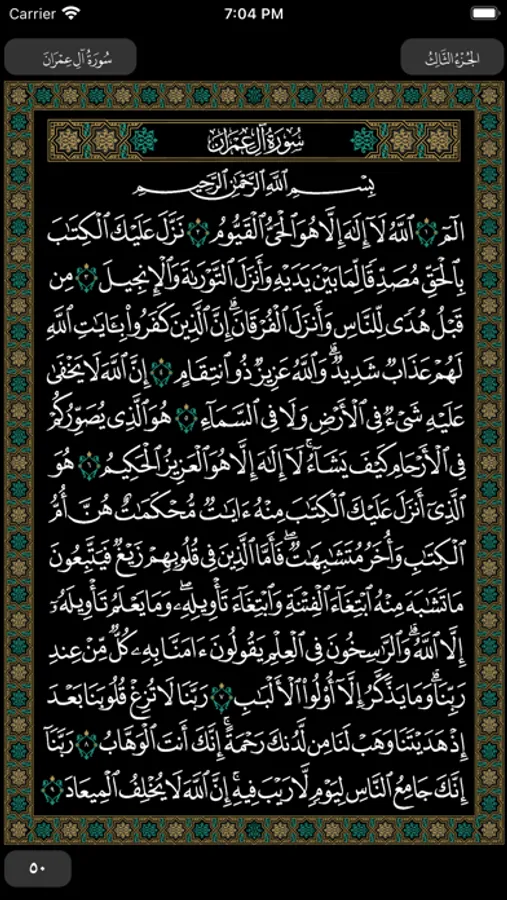 Carrier 7:04 PM
سُورَةُ آلِ عِمْرَانَ الجُزْءُ الثَّالِثُ
سُورَةُ آلِ عِمْرَانَ
بِسْمِ ٱللَّهِ ٱلرَّحْمَٰنِ ٱلرَّحِيمِ
الٓمٓ ١ ٱللَّهُ لَآ إِلَٰهَ إِلَّا هُوَ ٱلْحَىُّ ٱلْقَيُّومُ ٢ نَزَّلَ عَلَيْكَ ٱلْكِتَٰبَ
بِٱلْحَقِّ مُصَدِّقًا لِّمَا بَيْنَ يَدَيْهِ وَأَنزَلَ ٱلتَّوْرَىٰةَ وَٱلْإِنجِيلَ ٣ مِن
قَبْلُ هُدًى لِّلنَّاسِ وَأَنزَلَ ٱلْفُرْقَانَ ۗ إِنَّ ٱلَّذِينَ كَفَرُوا۟ بِـَٔايَٰتِ ٱللَّهِ
لَهُمْ عَذَابٌ شَدِيدٌ ۗ وَٱللَّهُ عَزِيزٌ ذُو ٱنتِقَامٍ ٤ إِنَّ ٱللَّهَ لَا يَخْفَىٰ
عَلَيْهِ شَىْءٌ فِى ٱلْأَرْضِ وَلَا فِى ٱلسَّمَآءِ ٥ هُوَ ٱلَّذِى يُصَوِّرُكُمْ
فِى ٱلْأَرْحَامِ كَيْفَ يَشَآءُ ۚ لَآ إِلَٰهَ إِلَّا هُوَ ٱلْعَزِيزُ ٱلْحَكِيمُ ٦ هُوَ
ٱلَّذِىٓ أَنزَلَ عَلَيْكَ ٱلْكِتَٰبَ مِنْهُ ءَايَٰتٌ مُّحْكَمَٰتٌ هُنَّ أُمُّ
ٱلْكِتَٰبِ وَأُخَرُ مُتَشَٰبِهَٰتٌ ۖ فَأَمَّا ٱلَّذِينَ فِى قُلُوبِهِمْ زَيْغٌ فَيَتَّبِعُونَ
مَا تَشَٰبَهَ مِنْهُ ٱبْتِغَآءَ ٱلْفِتْنَةِ وَٱبْتِغَآءَ تَأْوِيلِهِۦ ۗ وَمَا يَعْلَمُ تَأْوِيلَهُۥٓ
إِلَّا ٱللَّهُ ۗ وَٱلرَّٰسِخُونَ فِى ٱلْعِلْمِ يَقُولُونَ ءَامَنَّا بِهِۦ كُلٌّ مِّنْ عِندِ
رَبِّنَا ۗ وَمَا يَذَّكَّرُ إِلَّآ أُو۟لُوا۟ ٱلْأَلْبَٰبِ ٧ رَبَّنَا لَا تُزِغْ قُلُوبَنَا بَعْدَ
إِذْ هَدَيْتَنَا وَهَبْ لَنَا مِن لَّدُنكَ رَحْمَةً ۚ إِنَّكَ أَنتَ ٱلْوَهَّابُ ٨ رَبَّنَآ
إِنَّكَ جَامِعُ ٱلنَّاسِ لِيَوْمٍ لَّا رَيْبَ فِيهِ ۚ إِنَّ ٱللَّهَ لَا يُخْلِفُ ٱلْمِيعَادَ ٩
٥٠